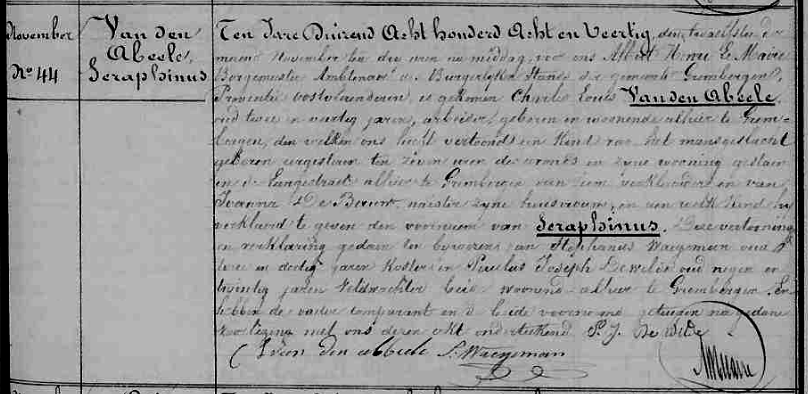 November
Van den
Abeele,
Seraphinus
No 44
Ten Jare Duizend Acht honderd Acht en Veertig, den twaelfsten der
maend November ten drie uren na middag, voor ons Albert Henri Le Maire
Borgemeester Ambtenaer Burgerlyken Stand der gemeente Grembergen,
Provintie Oostvlaenderen, is gekomen Charles Louis Van den Abeele,
oud twee en veertig jaren, arbeider, geboren en woonende alhier te Grem-
bergen, den welken ons heeft vertoond een Kind van het mansgeslacht
geboren eergisteren ten zeven uren des in zyne wooning gestaen
in de Langestraet alhier te Grembergen van hem verklaerder en van
Joanna De zyne huisvrouw, en aen welk kind hy
verklaerd te geven den voornaem van Seraphinus. Deze vertooning
en verklaring gedaen ten bywezen van Stephanus Waegeman oud
twee en dertig jaren Koster en Paulus Joseph Dewilde oud negen en
twintig jaren Veldwachter beide woonende alhier te Grembergen. En
hebben de vader comparant en de beide voornoemde getuigen na gedane
voorlezing met ons dezen akt onderteekend P. J. De Wilde
van den abbeele S. Waegeman